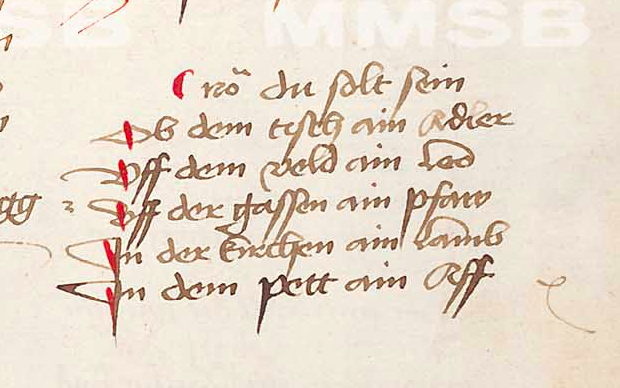 MMSB
Nō du solt sein
Ob dem tisch ain Adler
Uff dem veld ain Leo
Uff der gassen ain pfaw
In der kirchen ain Lamb
In dem pett ain Aff